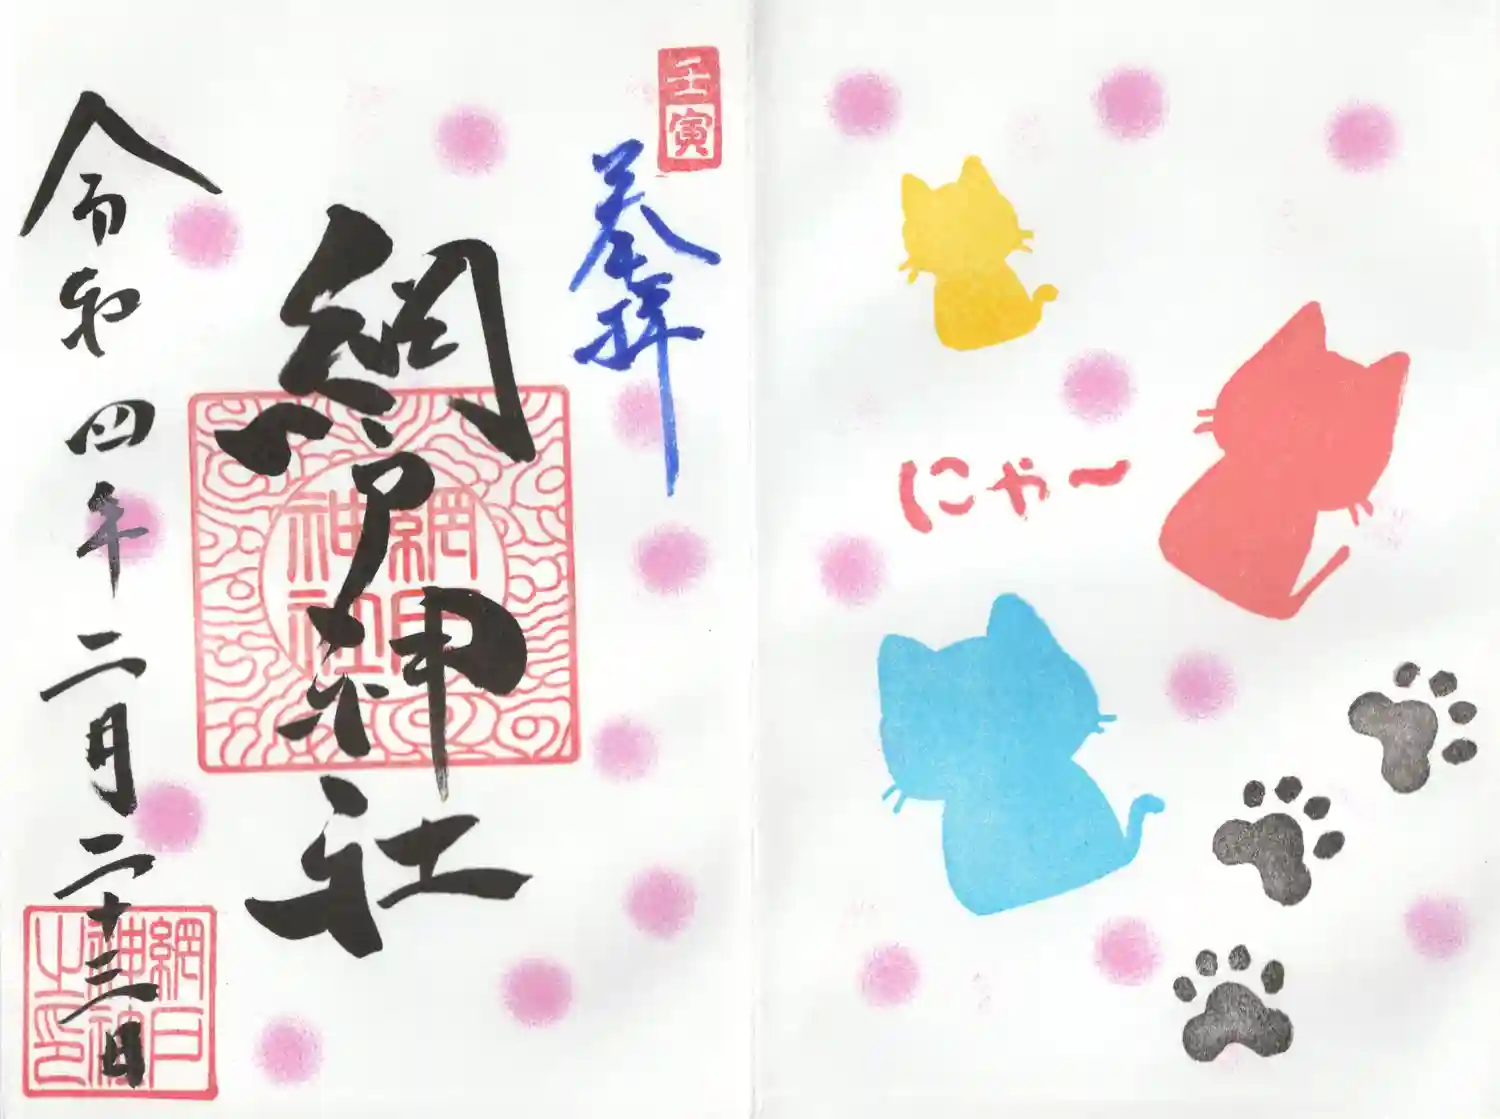 壬寅
奉拝
網戸神社
網戸
神社
令和四年二月二十三日
網戸
神社
之印
にゃー